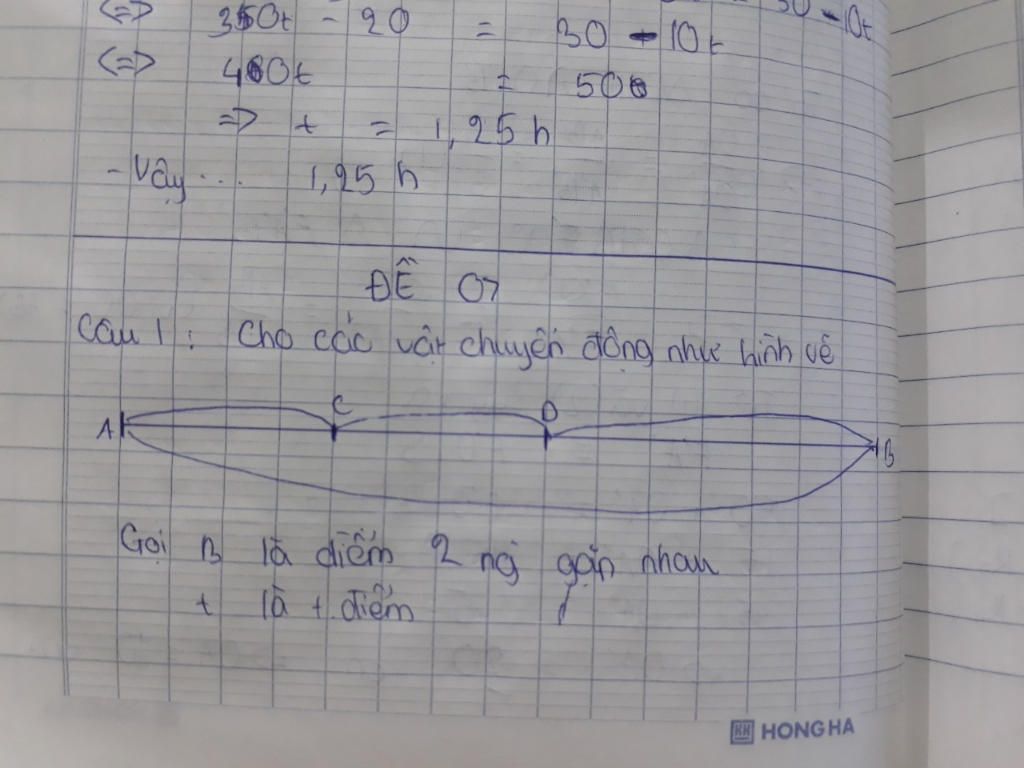 30 - 10t
<=> 350t - 20 = 30 - 10t
<=> 40t = 50
=> t = 1,25 h
- Vậy... 1,25 h
ĐỀ 07
Câu 1: Cho các vật chuyển động như hình vẽ
A C D B
Gọi B là điểm 2 ng gặp nhau
t là t.điểm
HONG HA